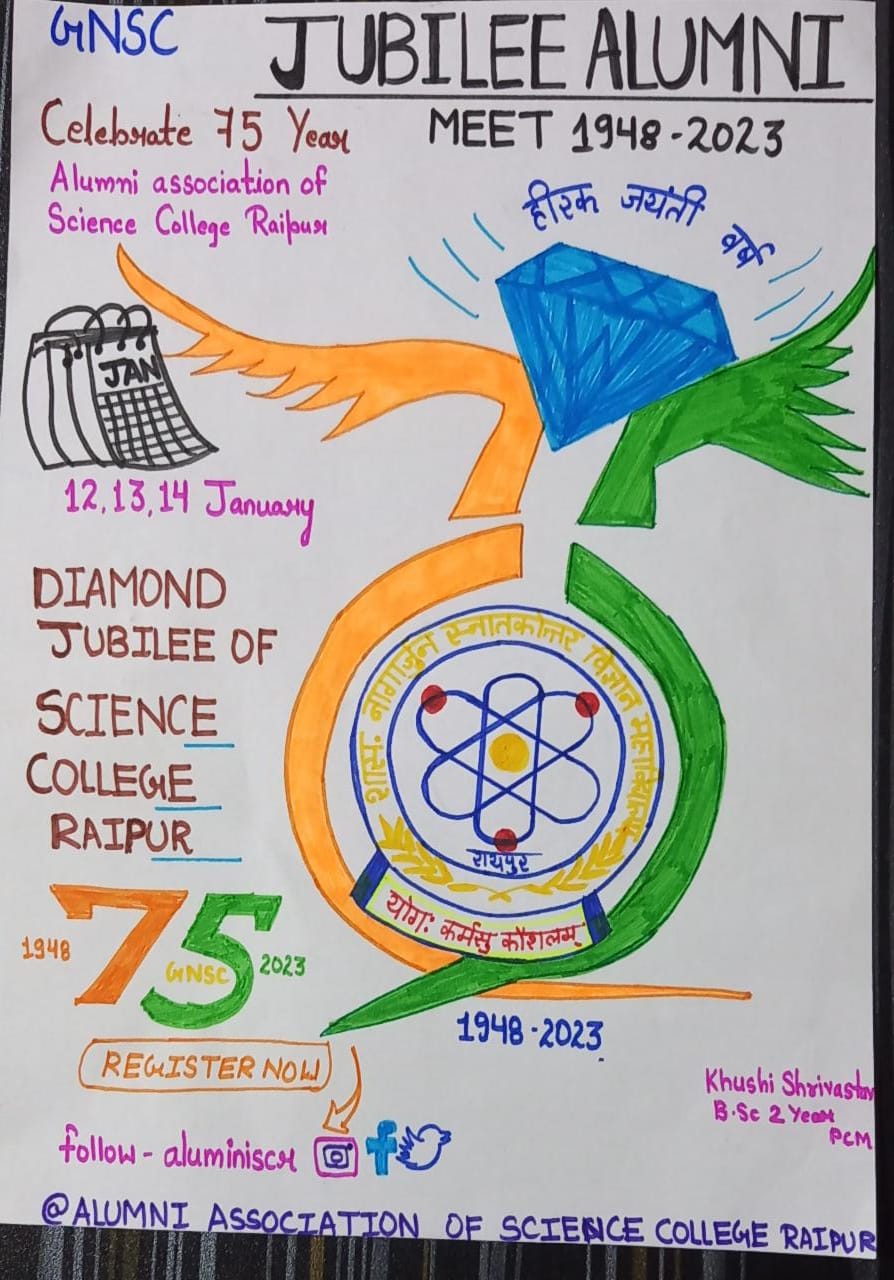 GNSC
JUBILEE ALUMNI
MEET 1948-2023
Celebrate 75 Year
Alumni association of
Science College Raipur
हीरक जयंती वर्ष
JAN
12,13,14 January
DIAMOND
JUBILEE OF
SCIENCE
COLLEGE
RAIPUR
शास. नागार्जुन स्नातकोत्तर विज्ञान महाविद्यालय
रायपुर
योगः कर्मसु कौशलम्
1948 75 2023
GNSC
1948-2023
REGISTER NOW
Khushi Shrivastav
B.Sc 2 Year
PCM
follow - aluminiscr
@ALUMNI ASSOCIATION OF SCIENCE COLLEGE RAIPUR